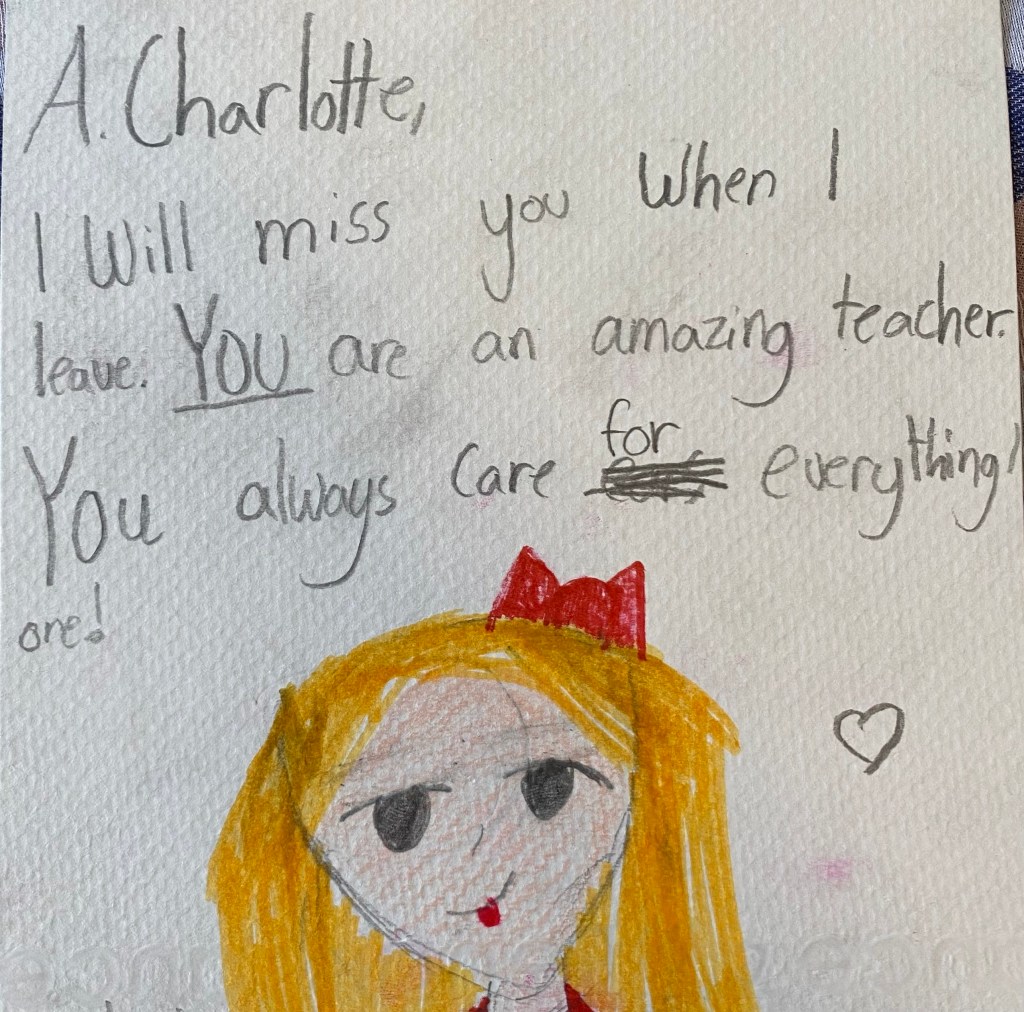 A. Charlotte,
I Will miss you When I
leave. YOU are an amazing teacher.
You always Care for everything!
one!